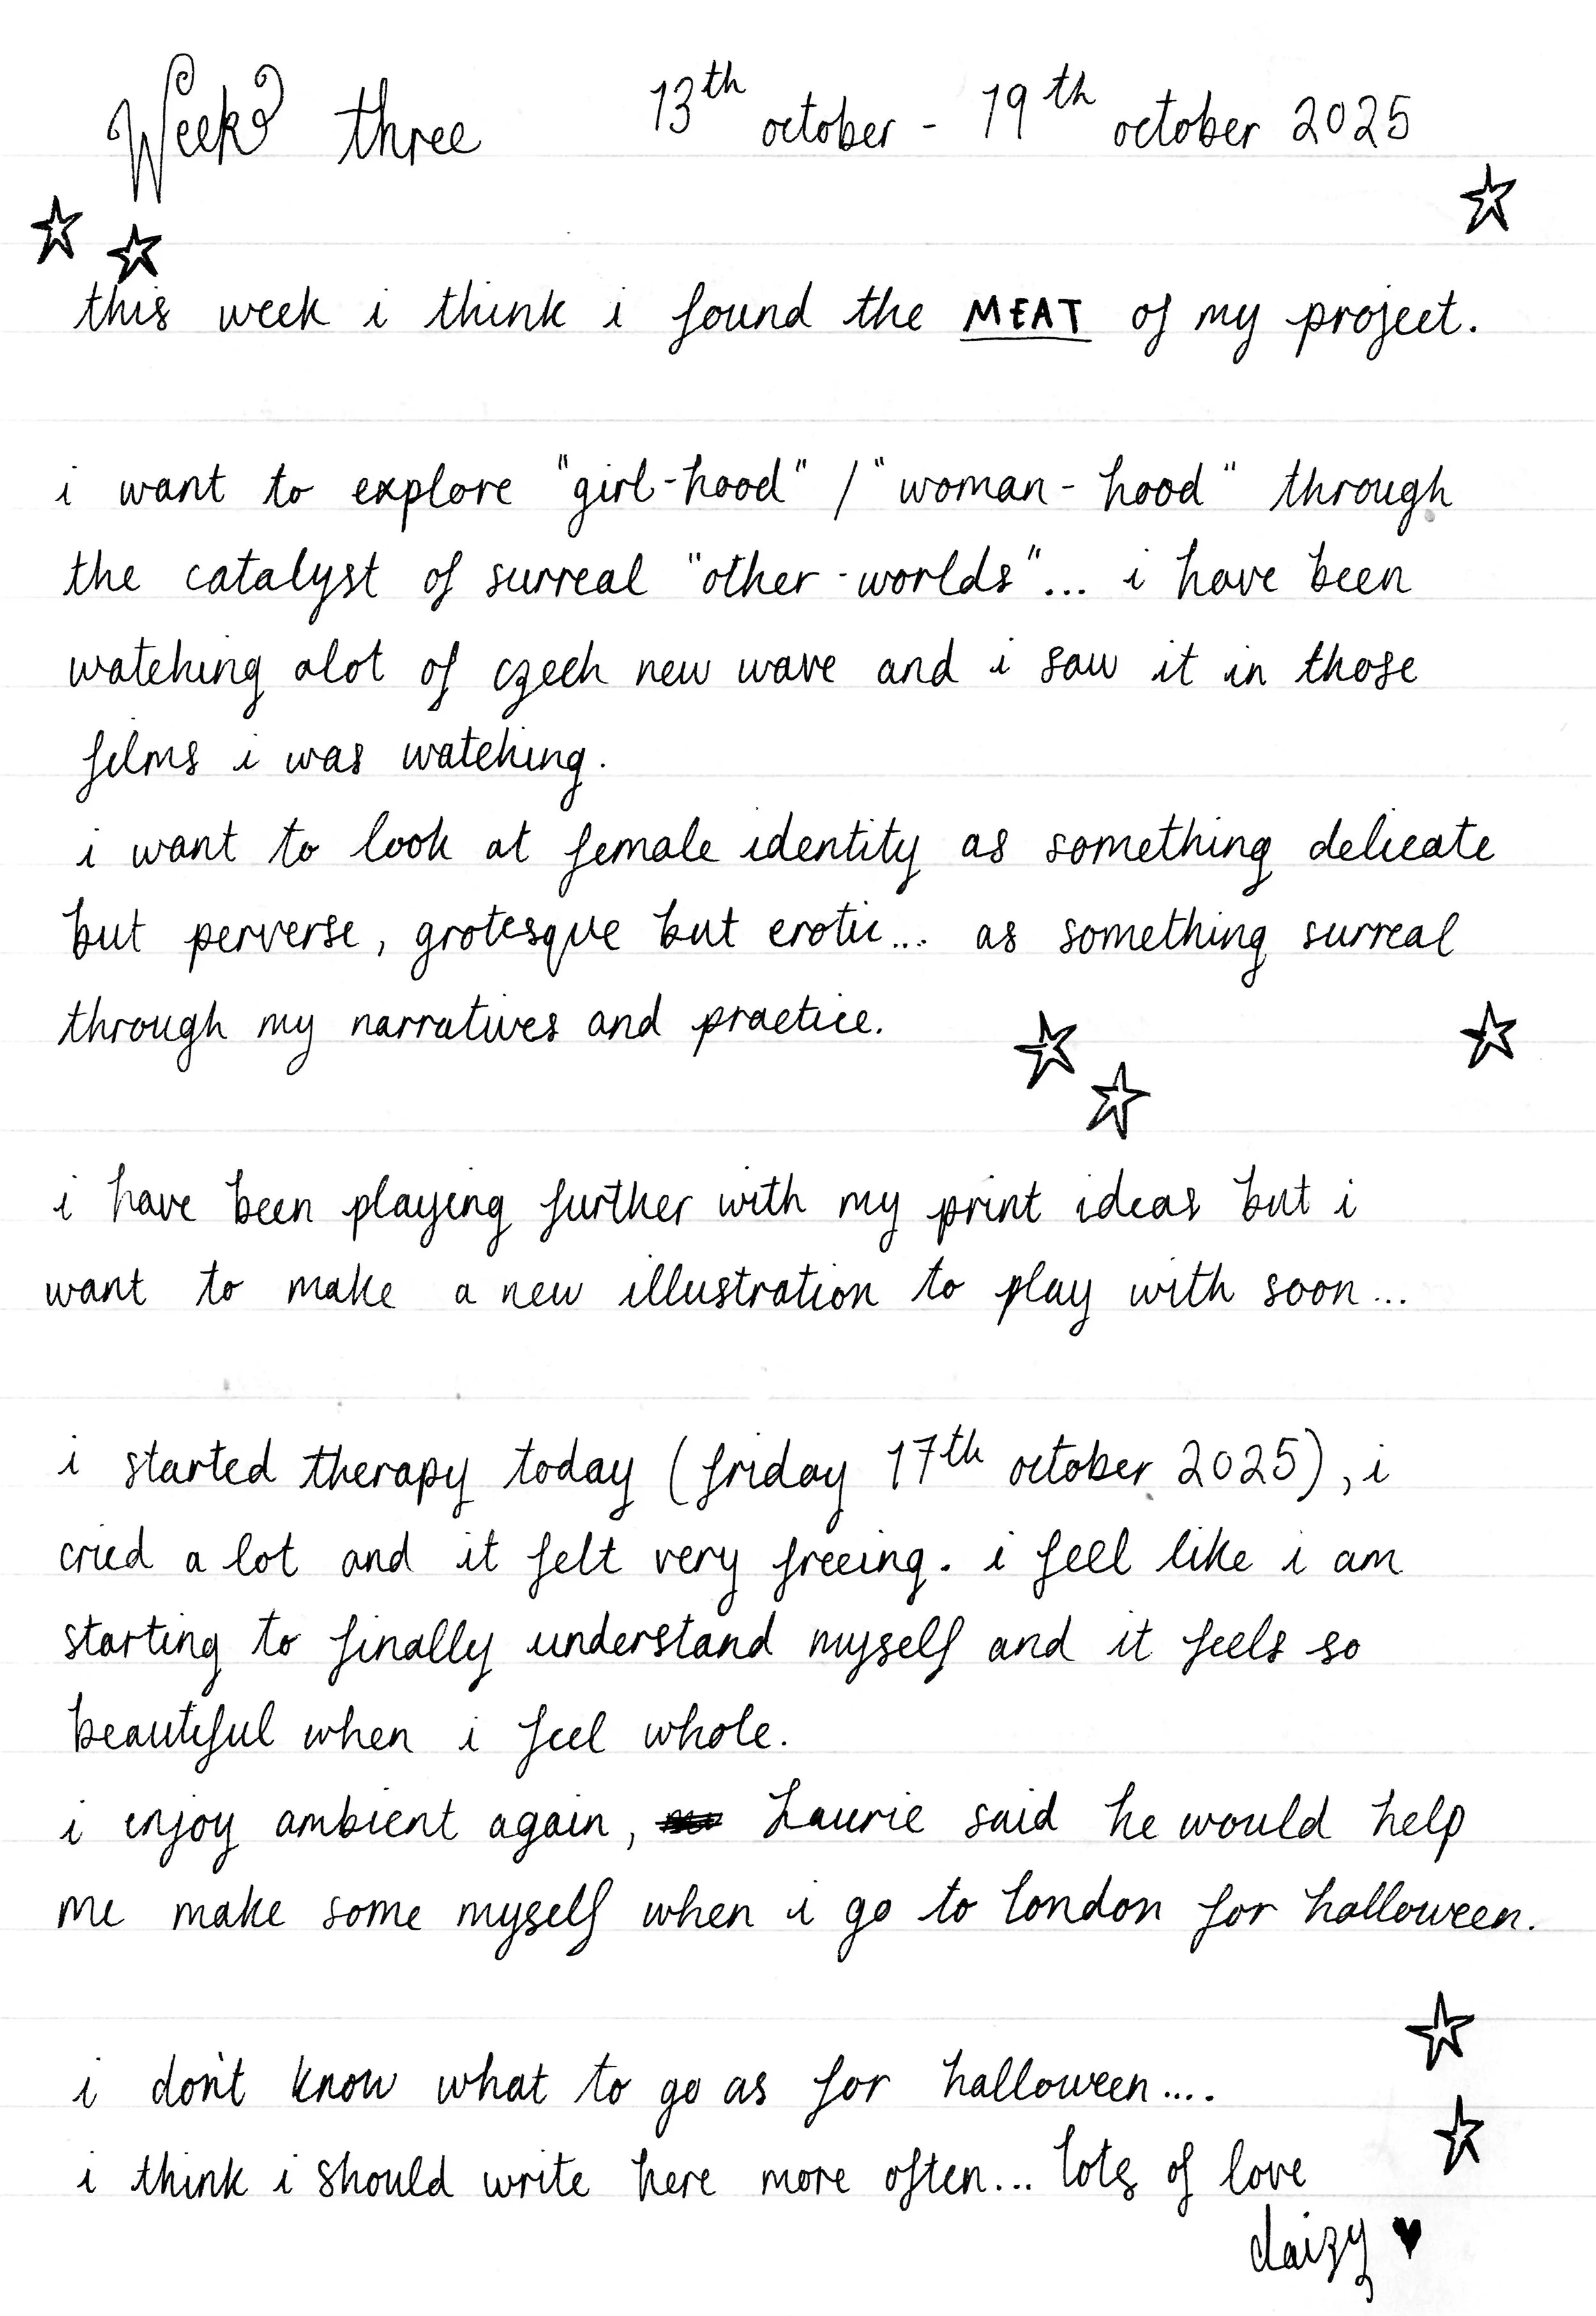 Week three 13th october - 19th october 2025
this week i think i found the MEAT of my project.
i want to explore "girl-hood" / "woman-hood" through
the catalyst of surreal "other-worlds"... i have been
watching alot of czech new wave and i saw it in those
films i was watching.
i want to look at female identity as something delicate
but perverse, grotesque but erotic... as something surreal
through my narratives and practice.
i have been playing further with my print ideas but i
want to make a new illustration to play with soon...
i started therapy today (friday 17th october 2025), i
cried a lot and it felt very freeing. i feel like i am
starting to finally understand myself and it feels so
beautiful when i feel whole.
i enjoy ambient again, Laurie said he would help
me make some myself when i go to london for halloween.
i don't know what to go as for halloween....
i think i should write here more often... lots of love
daizy ♥